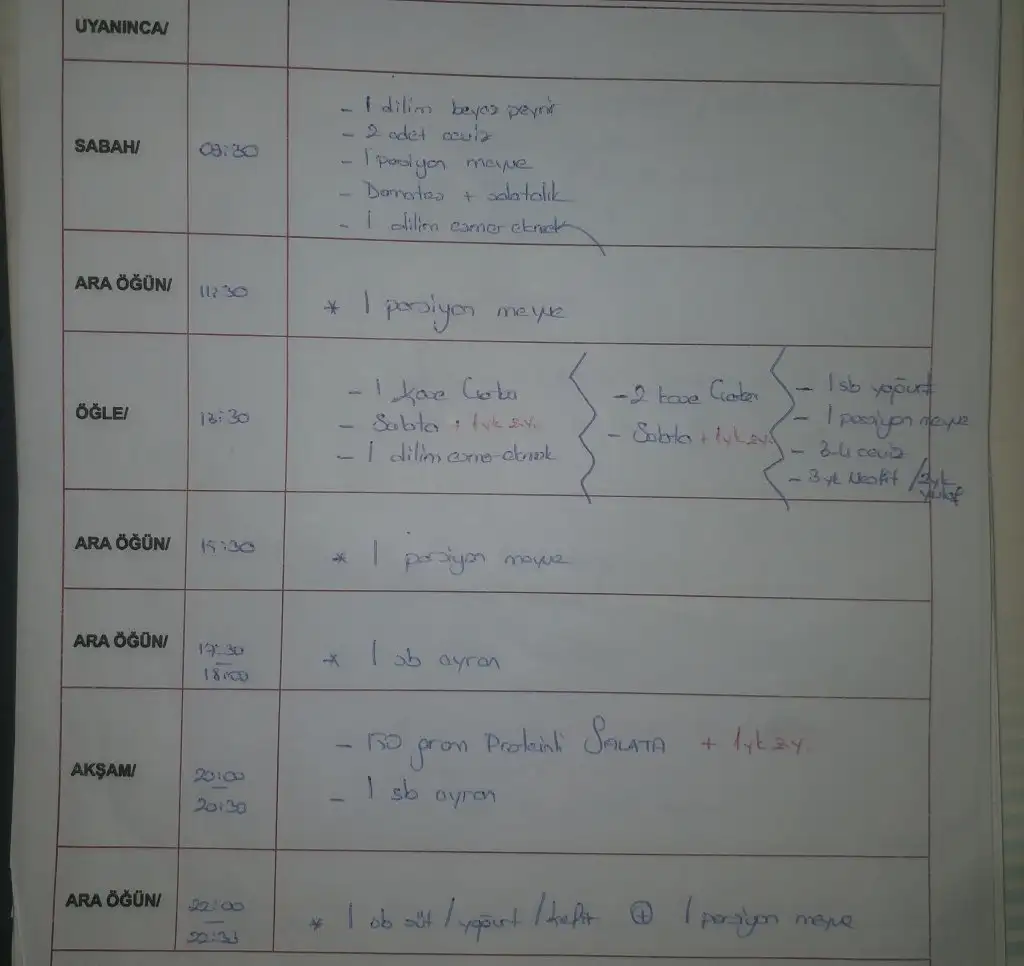 UYANINCA/
SABAH/
09:30
- 1 dilim beyaz peynir
- 2 adet ceviz
- 1 porsiyon meyve
- Domates + salatalık
- 1 dilim esmer ekmek
ARA ÖĞÜN/
11:30
* 1 porsiyon meyve
ÖĞLE/
13:30
- 1 kase Çorba
- Salata + 1yk z.y.
- 1 dilim esmer ekmek
- 2 kase Çorba
- Salata + 1yk z.y.
- 1 sb yoğurt
- 1 porsiyon meyve
- 3-4 ceviz
- 3 yk Nesfit / 3yk
yulaf
ARA ÖĞÜN/
15:30
* 1 porsiyon meyve
ARA ÖĞÜN/
17:30
18:00
* 1 sb ayran
AKŞAM/
20:00
20:30
- 150 gram Proteinli SALATA + 1yk z.y.
- 1 sb ayran
ARA ÖĞÜN/
22:00
22:30
* 1 sb süt / yoğurt / kefir + 1 porsiyon meyve